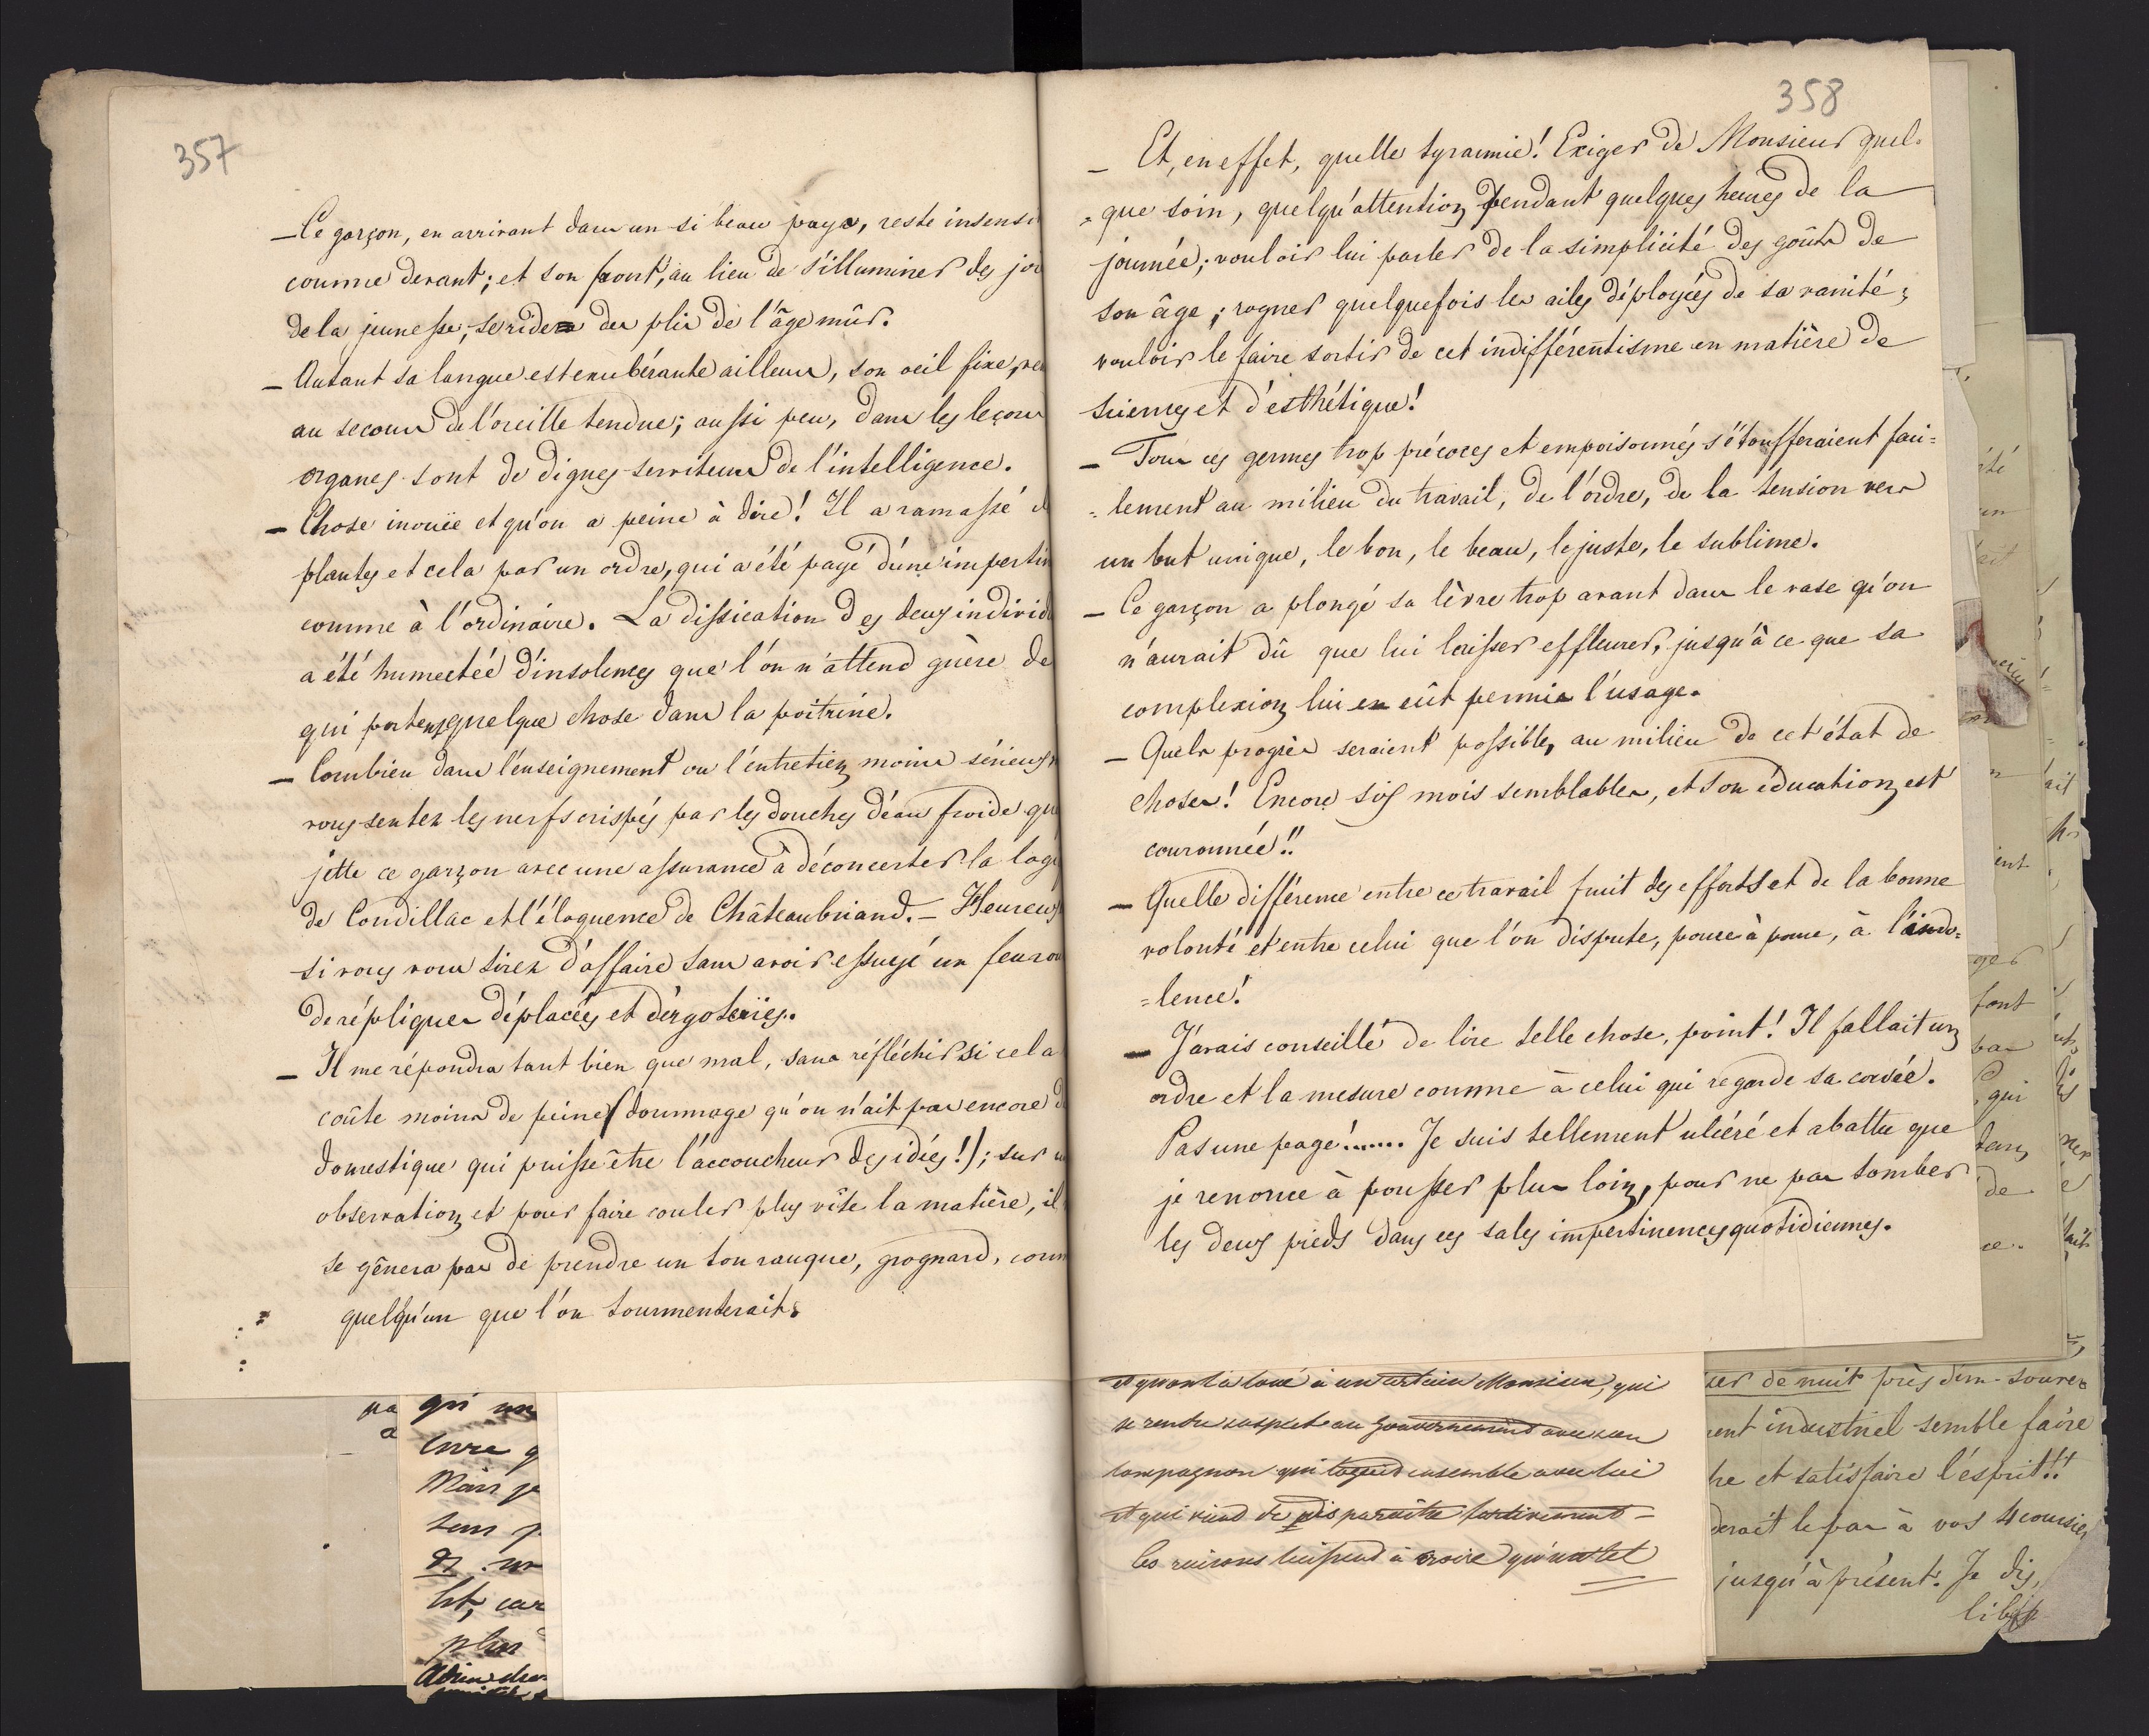 357
_ Ce garçon, en arrivant dans un si beau pays, reste insensi
comme devant; et son front, au lieu de s'illuminer des joi
de la jeunesse, se rider des plis de l'âge mûr.
_ Autant sa langue est exubérante ailleurs, son oeil fixe, ve
au secours de l'oreille tendue; aussi peu, dans les leçons
organes sont de dignes serviteurs de l'intelligence.
_ Chose inouïe et qu'on a peine à dire! Il a ramassé d
plantes et cela par un ordre, qui a été payé d'une impertin
comme à l'ordinaire. La dissication des deux individu
a été humectée d'insolences que l'on n'attend guère de
qui portent quelque chose dans la poitrine.
_ Combien dans l'enseignement ou l'entretien moins sérieux
vous sentez les nerfs crispés par les douches d'eau froide qu
jette ce garçon avec une assurance à déconcerter la logi
de Condillac et l'éloquence de Châteaubriand. _ Heureux
si vous vous tirez d'affaire sans avoir essuyé un feu rou
de répliques déplacées et d'ergoteries.
_ Il me répondra tant bien que mal, sans réfléchir si cela
coûte moins de peine (dommage qu'on n'ait pas encore d
domestique qui puisse être l'accoucheur des idées!); sur
observation et pour faire couler plus vite la matière, il
se gênera pas de prendre un ton rauque, grognard, comm
quelqu'un que l'on tourmenterait.
358
_ Et, en effet, quelle tyrannie! Exiger de Monsieur quel-
=que soin, quelqu'attention pendant quelques heures de la
journée; vouloir lui parler de la simplicité des goûts de
son âge; rogner quelquefois les ailes déployées de sa vanité;
vouloir le faire sortir de cet indifférentisme en matière de
sciences et d'esthétique!
_ Tous ces germes trop précoces et empoisonnés s'étoufferaient faci=
=lement au milieu du travail, de l'ordre, de la tension vers
un but unique, le bon, le beau, le juste, le sublime.
_ Ce garçon a plongé sa lèvre trop avant dans le vase qu'on
n'aurait dû que lui laisser effleurer, jusqu'à ce que sa
complexion lui en eût permis l'usage.
_ Quels progrès seraient possibles, au milieu de cet état de
choses! Encore six mois semblables, et son éducation est
couronnée!!
_ Quelle différence entre ce travail fruit des efforts et de la bonne
volonté et entre celui que l'on dispute, pouce à pouce, à l'indo=
=lence!
_ J'avais conseillé de lire telle chose, point! Il fallait un
ordre et la mesure comme à celui qui regarde sa corvée.
Pas une page!...... Je suis tellement ulcéré et abattu que
je renonce à pousser plus loin, pour ne pas tomber
les deux pieds dans ces sales impertinences quotidiennes.
qui
Mais je
car
plus
et quant à un certain Monsieur, qui
se rendre suspect au Gouvernement avec son
compagnon qui ensemble avec lui
et qui vient de disparaître furtivement _
les raisons à croire
font
qui
dans
de
de nuit près d'un
industriel semble faire
et satisfaire l'esprit!!
le pas à vos 4 coursier
jusqu'à présent. Je dis,